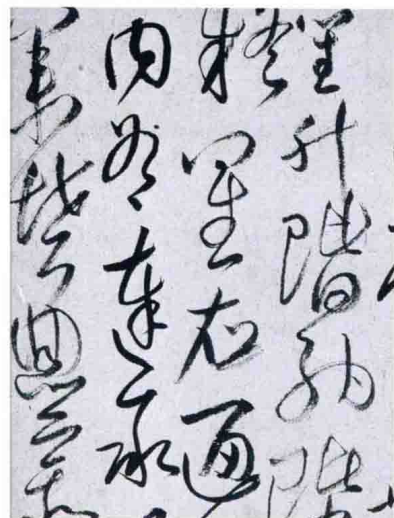 笙升階納陛
疑星右通
内左達承
集墳典亦